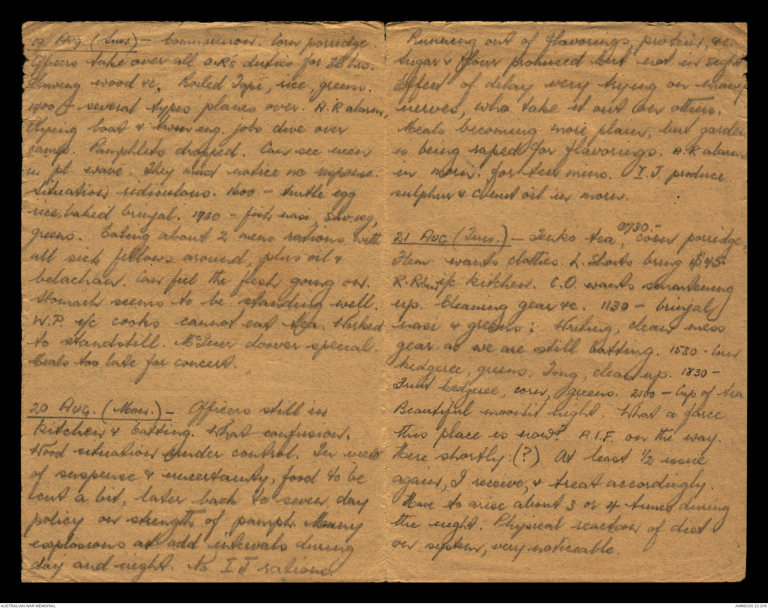 19 Aug (Sun) - Communion. Corn porridge.
Officers take over all O.R's duties for 36 hrs.
wood &c. Boiled Tops, rice, greens.
1400 - several types planes over. A.R alarm,
flying boat & twin eng. jobs dive over
camp. Pamphlets dropped. Can see men
in pl wave. They must notice no response.
Situation ridiculous. 1600 - turtle egg
rice, baked brinjal. 1930 - fish, nasi, Sav. veg,
greens. Eating about 2 mens rations with
all sick fellows around, plus oil &
belachan. Can feel the flesh going on.
Stomach seems to be standing well.
W.P. i/c cooks cannot eat tea. Worked
to standstill. doover special.
Meals too late for concert.
20 Aug. (Mon.) - Officers still in
kitchen & batting. What confusion.
Wood situation under control. In view
of suspense & uncertainty, food to be
cut a bit, later back to seven day
policy on strength of pamph. Many
explosions at odd intervals during
day and night. No I J rations
Running out of flavorings, protein, &c
Sugar & flour promised but not in sight.
Effect of delay very trying on many
nerves, who take it out on others.
Meals becoming more plain, but garden
is being raped for flavorings. A.R alarm
in morn. for ten mins. I.J. produce
sulphur & cocnut oil in morn.
21 Aug (Tues.) - Tenko tea, 0730 - corn porridge,
wants clothes. L. Shorts bring $45
R. i/c kitchen. C.O. wants smartening
up. Cleaning gear &c. 1130 - brinjal
nasi & greens; clean mess
gear as we are still batting. 1530 - corn
kedgeree, greens. Tong, clean up. 1830 -
kedgeree, corn, greens. 2100 - Cup of tea
Beautiful moonlit night. What a farce
this place is now? A.I.F. on the way.
Here shortly (?) At least 1/2 issue
again, I receive, & treat accordingly.
Have to arise about 3 or 4 times during
the night. Physical reaction of diet
on system, very noticeable.
AUSTRALIAN WAR MEMORIAL